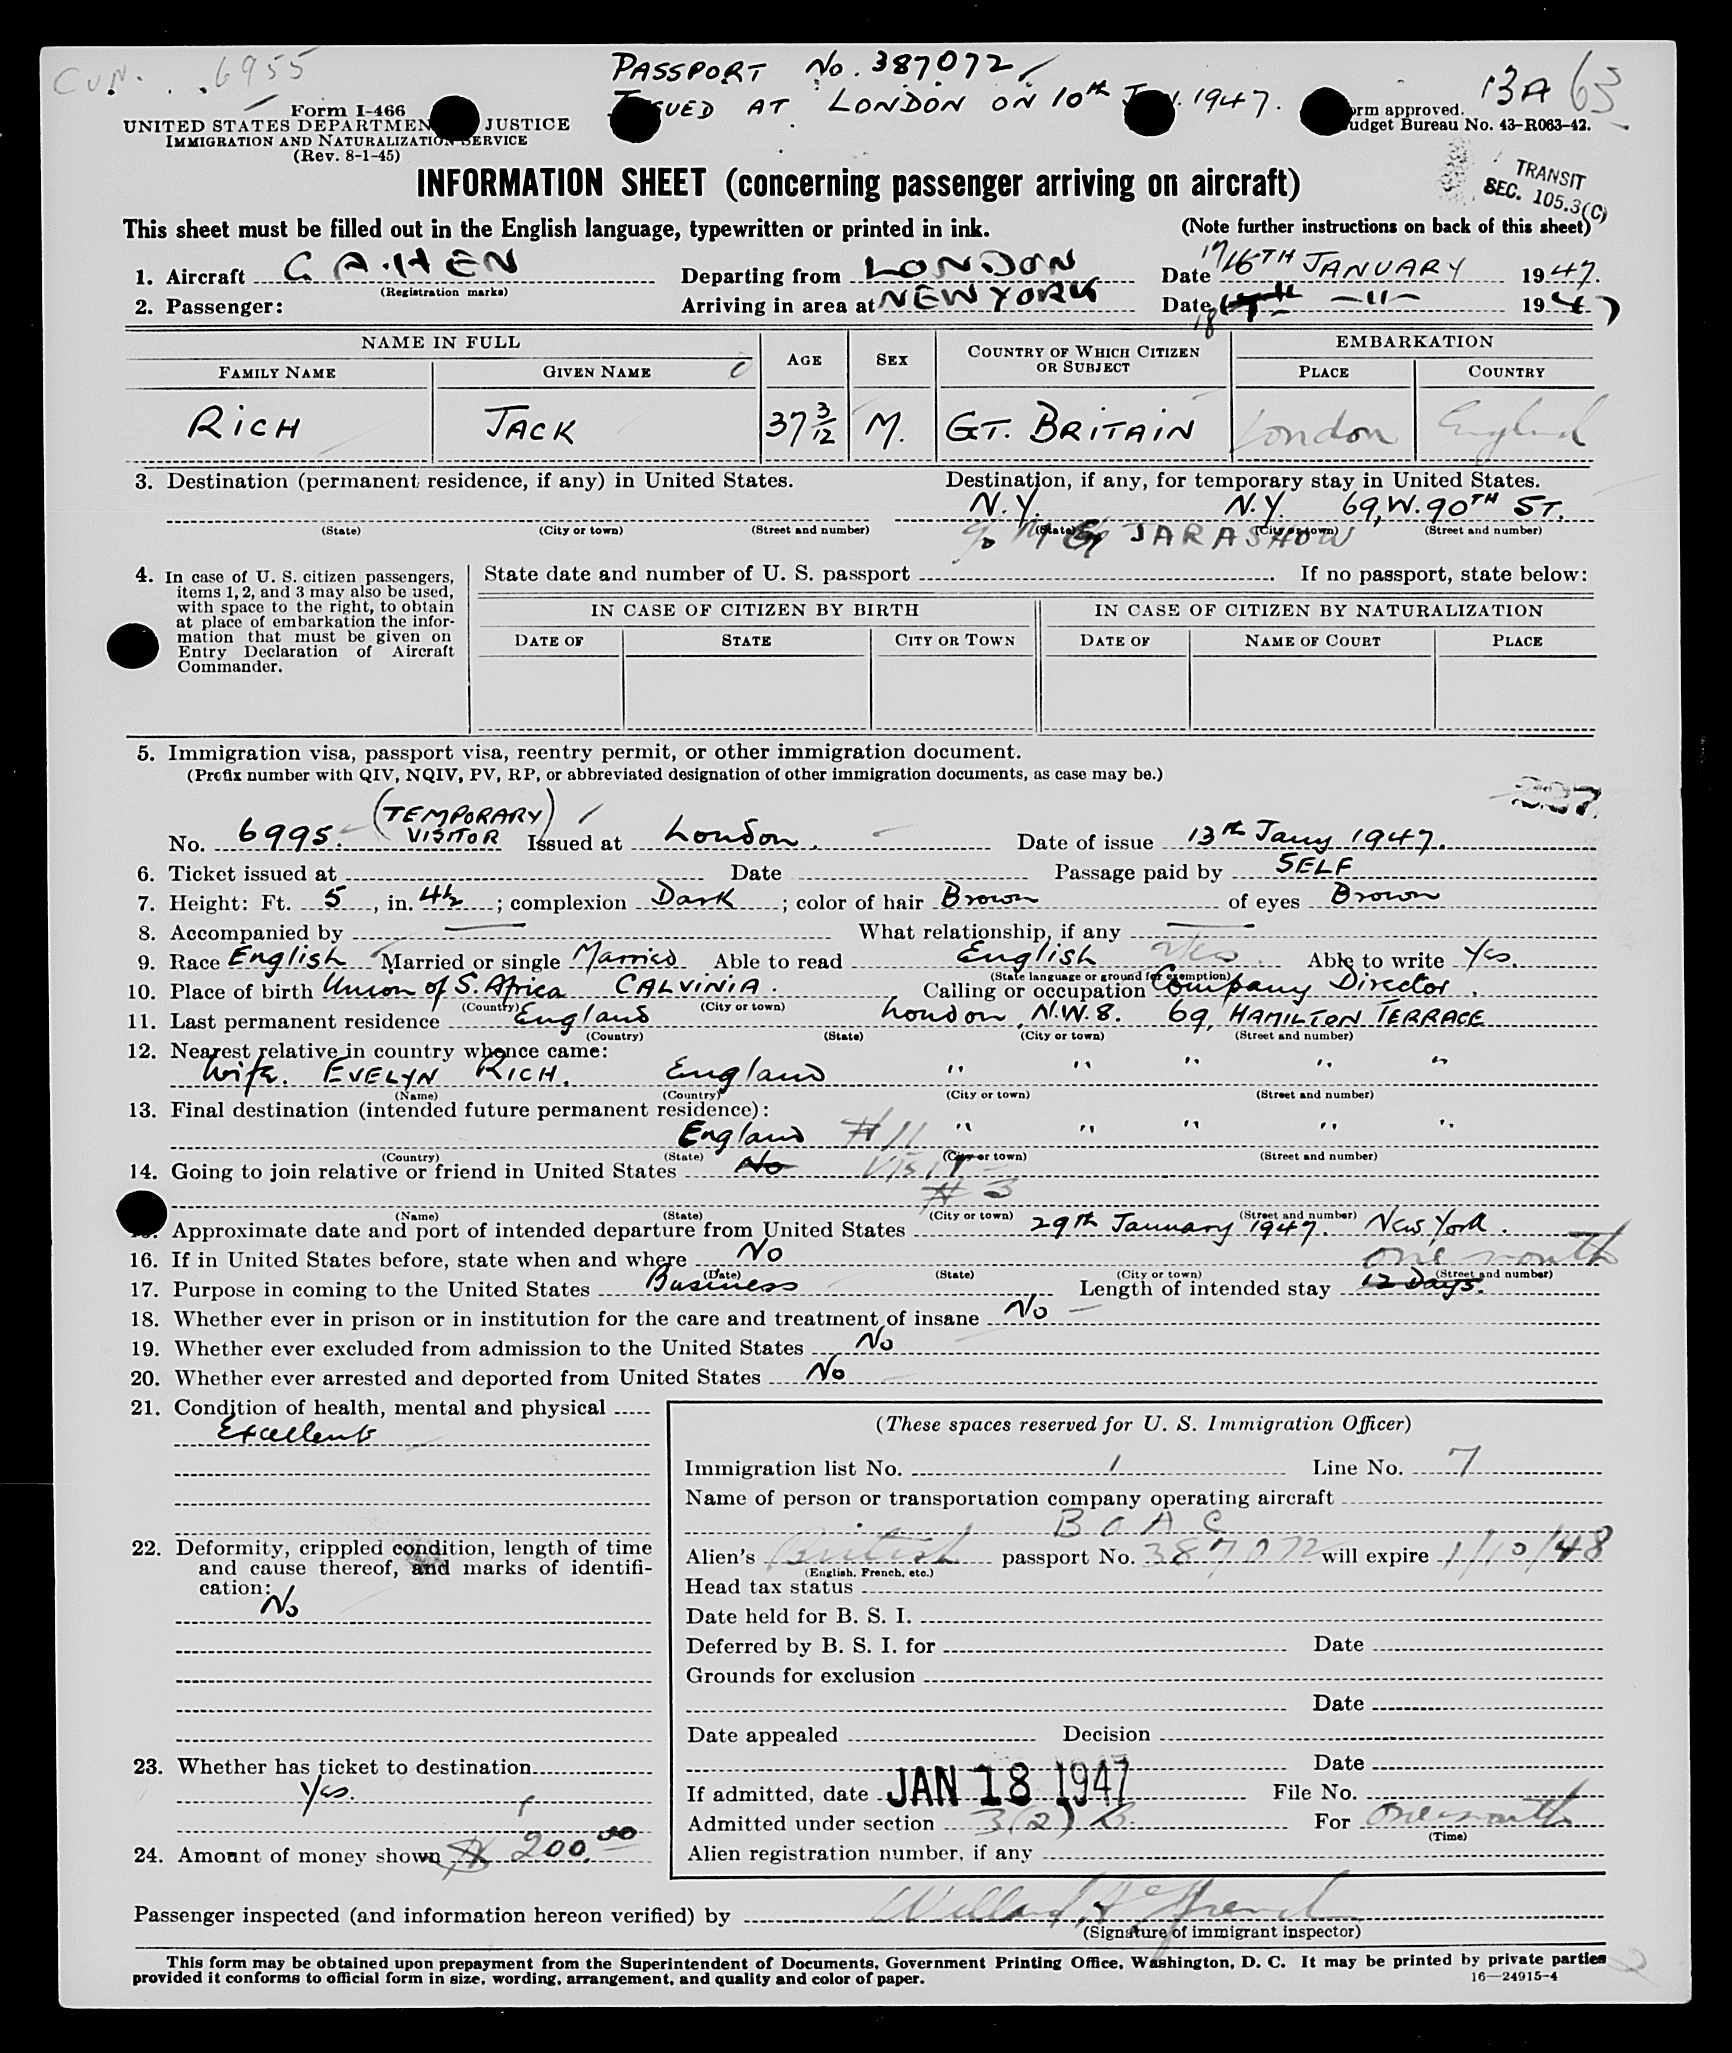 PASSPORT No. 387072
ISSUED AT LONDON ON 10th JAN. 1947.
6955
13A 63
Form I-466
UNITED STATES DEPARTMENT JUSTICE
IMMIGRATION AND NATURALIZATION SERVICE
(Rev. 8-1-45)
Form approved.
Budget Bureau No. 43-R063-42.
TRANSIT
SEC. 105.3(C)
INFORMATION SHEET (concerning passenger arriving on aircraft)
This sheet must be filled out in the English language, typewritten or printed in ink. (Note further instructions on back of this sheet)
1. Aircraft G A.HEN Departing from LONDON Date 17/16TH JANUARY 1947.
(Registration marks)
2. Passenger: Arriving in area at NEW YORK Date 18 —11— 1947
NAME IN FULL AGE SEX COUNTRY OF WHICH CITIZEN OR SUBJECT EMBARKATION
FAMILY NAME GIVEN NAME PLACE COUNTRY
RICH JACK 37 3/12 M. GT. BRITAIN London England
3. Destination (permanent residence, if any) in United States. Destination, if any, for temporary stay in United States.
N.Y. N.Y. 69, W. 90TH ST.
(State) (City or town) (Street and number) (State) (City or town) (Street and number)
JARASHOW
4. In case of U. S. citizen passengers, items 1, 2, and 3 may also be used, with space to the right, to obtain at place of embarkation the information that must be given on Entry Declaration of Aircraft Commander.
State date and number of U. S. passport . If no passport, state below:
IN CASE OF CITIZEN BY BIRTH IN CASE OF CITIZEN BY NATURALIZATION
DATE OF STATE CITY OR TOWN DATE OF NAME OF COURT PLACE
5. Immigration visa, passport visa, reentry permit, or other immigration document.
(Prefix number with QIV, NQIV, PV, RP, or abbreviated designation of other immigration documents, as case may be.)
No. 6995. (TEMPORARY VISITOR) Issued at London. Date of issue 13th Jany 1947.
6. Ticket issued at Date Passage paid by SELF
7. Height: Ft. 5, in. 4½; complexion Dark; color of hair Brown of eyes Brown
8. Accompanied by — What relationship, if any —
9. Race English Married or single Married Able to read English Yes Able to write Yes.
(State language or ground for exemption)
10. Place of birth Union of S. Africa CALVINIA. Calling or occupation Company Director.
(Country) (City or town)
11. Last permanent residence England London, N.W.8. 69, HAMILTON TERRACE
(Country) (State) (City or town) (Street and number)
12. Nearest relative in country whence came:
Wife. EVELYN RICH. England " " " " "
(Name) (Country) (City or town) (Street and number)
13. Final destination (intended future permanent residence):
England # 11 " " " " "
(Country) (State) (City or town) (Street and number)
14. Going to join relative or friend in United States No Visit
# 3
(Name) (State) (City or town) (Street and number)
15. Approximate date and port of intended departure from United States 29th January 1947. New York.
16. If in United States before, state when and where No
(Date) (State) (City or town) (Street and number)
one month
17. Purpose in coming to the United States Business Length of intended stay 12 Days.
18. Whether ever in prison or in institution for the care and treatment of insane No
19. Whether ever excluded from admission to the United States No
20. Whether ever arrested and deported from United States No
21. Condition of health, mental and physical
Excellent
22. Deformity, crippled condition, length of time and cause thereof, and marks of identification:
No
23. Whether has ticket to destination
Yes.
24. Amount of money shown $ 200.00
(These spaces reserved for U. S. Immigration Officer)
Immigration list No. 1 Line No. 7
Name of person or transportation company operating aircraft
B O A C
Alien's British passport No. 387072 will expire 1/10/48
(English, French, etc.)
Head tax status
Date held for B. S. I.
Deferred by B. S. I. for Date
Grounds for exclusion
Date
Date appealed Decision
Date
If admitted, date JAN 18 1947 File No.
Admitted under section 3(2) B. For One month
(Time)
Alien registration number, if any
Passenger inspected (and information hereon verified) by
(Signature of immigrant inspector)
This form may be obtained upon prepayment from the Superintendent of Documents, Government Printing Office, Washington, D. C. It may be printed by private parties
provided it conforms to official form in size, wording, arrangement, and quality and color of paper. 16—24915-4